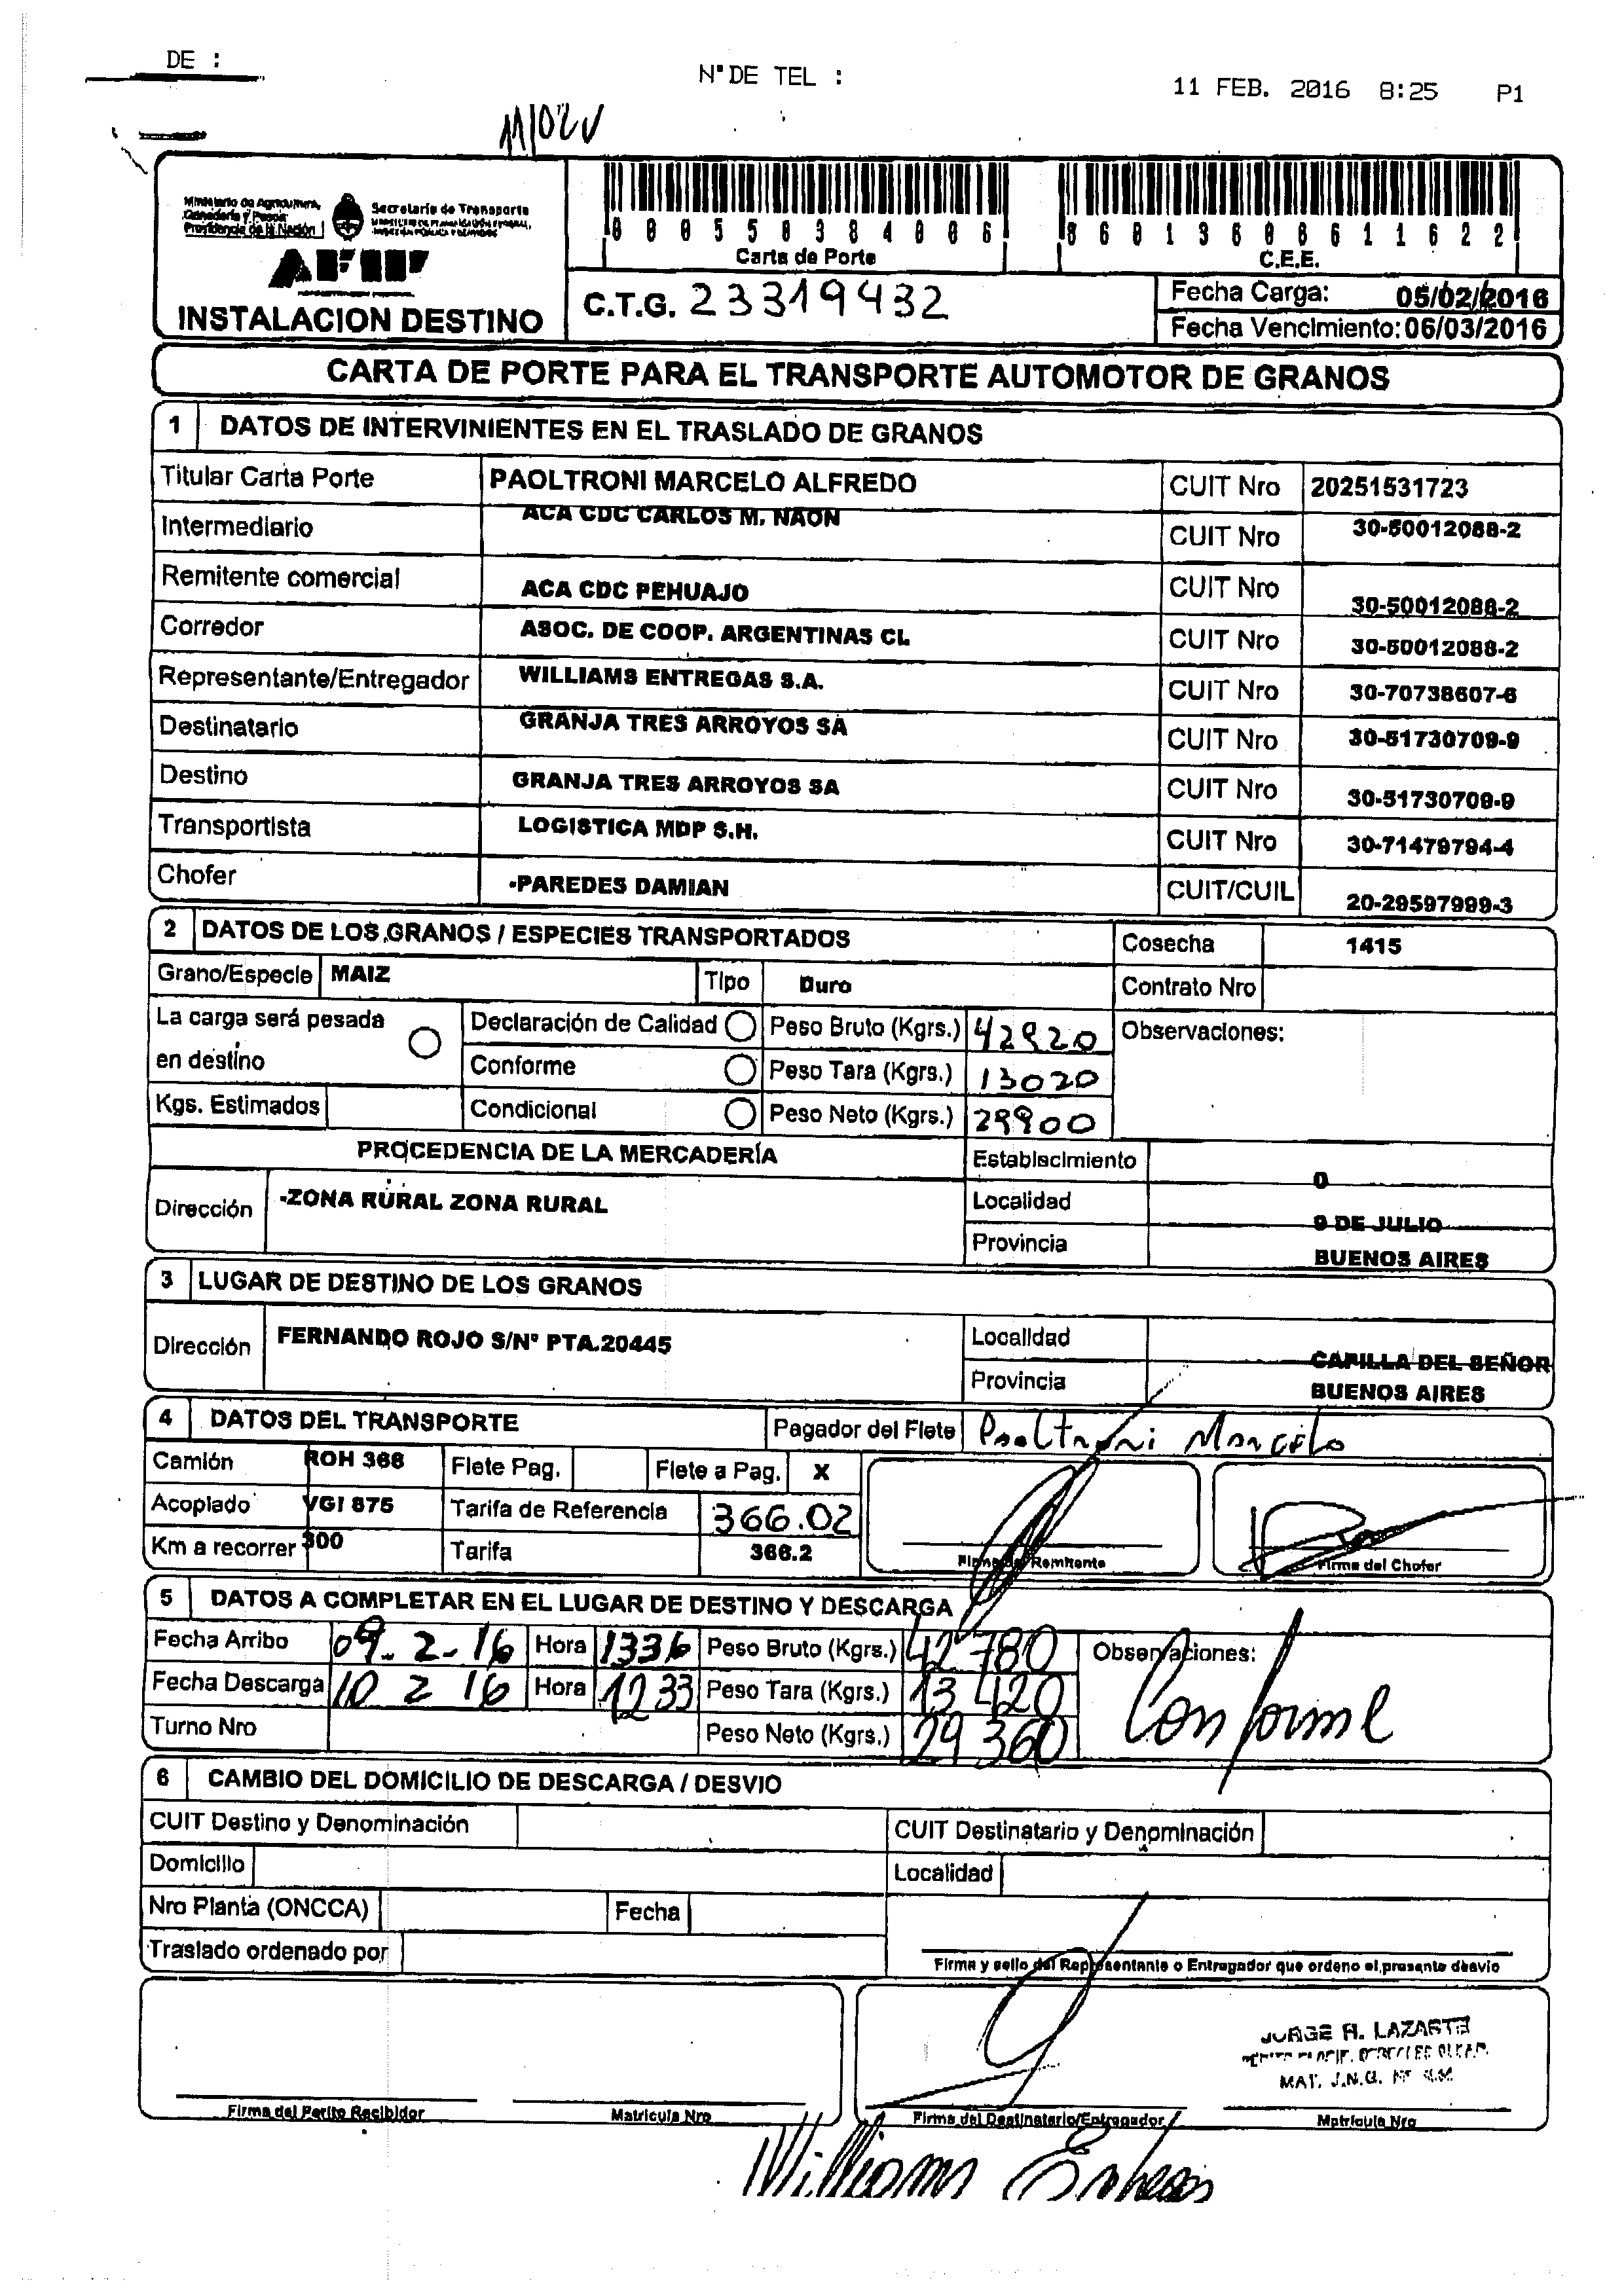 DE :
N° DE TEL :
11 FEB. 2016 8:25 P1
11/02
Ministerio de Agricultura,
Ganadería y Pesca
Presidencia de la Nación
Secretaría de Transporte
AFIP
INSTALACION DESTINO
Carta de Porte
C.E.E.
C.T.G. 23319432
Fecha Carga: 05/02/2016
Fecha Vencimiento: 06/03/2016
CARTA DE PORTE PARA EL TRANSPORTE AUTOMOTOR DE GRANOS
1 DATOS DE INTERVINIENTES EN EL TRASLADO DE GRANOS
Titular Carta Porte PAOLTRONI MARCELO ALFREDO CUIT Nro 20251531723
Intermediario ACA CDC CARLOS M. NAON CUIT Nro 30-50012088-2
Remitente comercial ACA CDC PEHUAJO CUIT Nro 30-50012088-2
Corredor ASOC. DE COOP. ARGENTINAS CL CUIT Nro 30-50012088-2
Representante/Entregador WILLIAMS ENTREGAS S.A. CUIT Nro 30-70738607-6
Destinatario GRANJA TRES ARROYOS SA CUIT Nro 30-51730709-9
Destino GRANJA TRES ARROYOS SA CUIT Nro 30-51730709-9
Transportista LOGISTICA MDP S.H. CUIT Nro 30-71479794-4
Chofer -PAREDES DAMIAN CUIT/CUIL 20-29597999-3
2 DATOS DE LOS GRANOS / ESPECIES TRANSPORTADOS Cosecha 1415
Grano/Especie MAIZ Tipo Duro Contrato Nro
La carga será pesada en destino Declaración de Calidad Peso Bruto (Kgrs.) 42920 Observaciones:
Conforme Peso Tara (Kgrs.) 13020
Kgs. Estimados Condicional Peso Neto (Kgrs.) 29900
PROCEDENCIA DE LA MERCADERÍA Establecimiento 0
Dirección -ZONA RURAL ZONA RURAL Localidad 9 DE JULIO
Provincia BUENOS AIRES
3 LUGAR DE DESTINO DE LOS GRANOS
Dirección FERNANDO ROJO S/N° PTA.20445 Localidad CAPILLA DEL SEÑOR
Provincia BUENOS AIRES
4 DATOS DEL TRANSPORTE Pagador del Flete Paoltroni Marcelo
Camión ROH 368 Flete Pag. Flete a Pag. X
Acoplado VGI 875 Tarifa de Referencia 366.02
Km a recorrer 300 Tarifa 366.2
Firma del Remitente Firma del Chofer
5 DATOS A COMPLETAR EN EL LUGAR DE DESTINO Y DESCARGA
Fecha Arribo 09.2-16 Hora 1336 Peso Bruto (Kgrs.) 42780 Observaciones:
Fecha Descarga 10 2 16 Hora 1233 Peso Tara (Kgrs.) 13420 Conforme
Turno Nro Peso Neto (Kgrs.) 29360
6 CAMBIO DEL DOMICILIO DE DESCARGA / DESVIO
CUIT Destino y Denominación CUIT Destinatario y Denominación
Domicilio Localidad
Nro Planta (ONCCA) Fecha
Traslado ordenado por
Firma y sello del Representante o Entregador que ordeno el presente desvio
JORGE R. LAZARTE
MAT. J.N.G.
Firma del Perito Recibidor Matricula Nro Firma del Destinatario/Entregador Matricula Nro
Williams Entregas